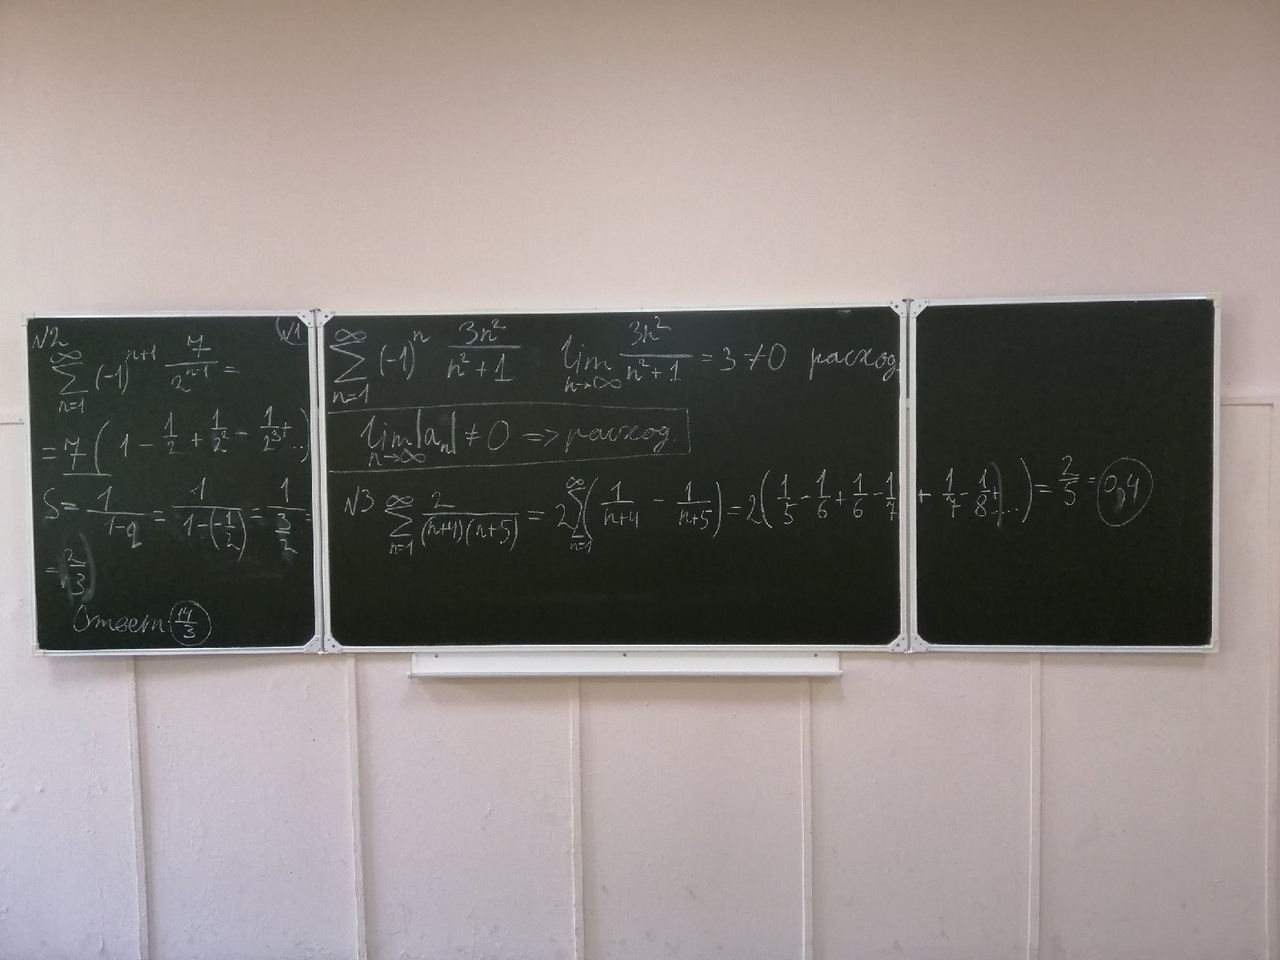 №2
∑_{n=1}^{∞} (-1)^{n+1} 7/2^{n-1} =
= 7 ( 1 - 1/2 + 1/2² - 1/2³ + ...)
S = 1/(1-q) = 1/(1-(-1/2)) = 1/(3/2) =
= 2/3
Ответ: 14/3
№1
∑_{n=1}^{∞} (-1)^n 3n²/(n²+1) lim_{n→∞} 3n²/(n²+1) = 3 ≠ 0 расход.
lim_{n→∞} |a_n| ≠ 0 => расход.
№3 ∑_{n=1}^{∞} 2/((n+4)(n+5)) = 2∑_{n=1}^{∞} (1/(n+4) - 1/(n+5)) = 2(1/5 - 1/6 + 1/6 - 1/7 + 1/7 - 1/8 + ...) = 2/5 = 0,4